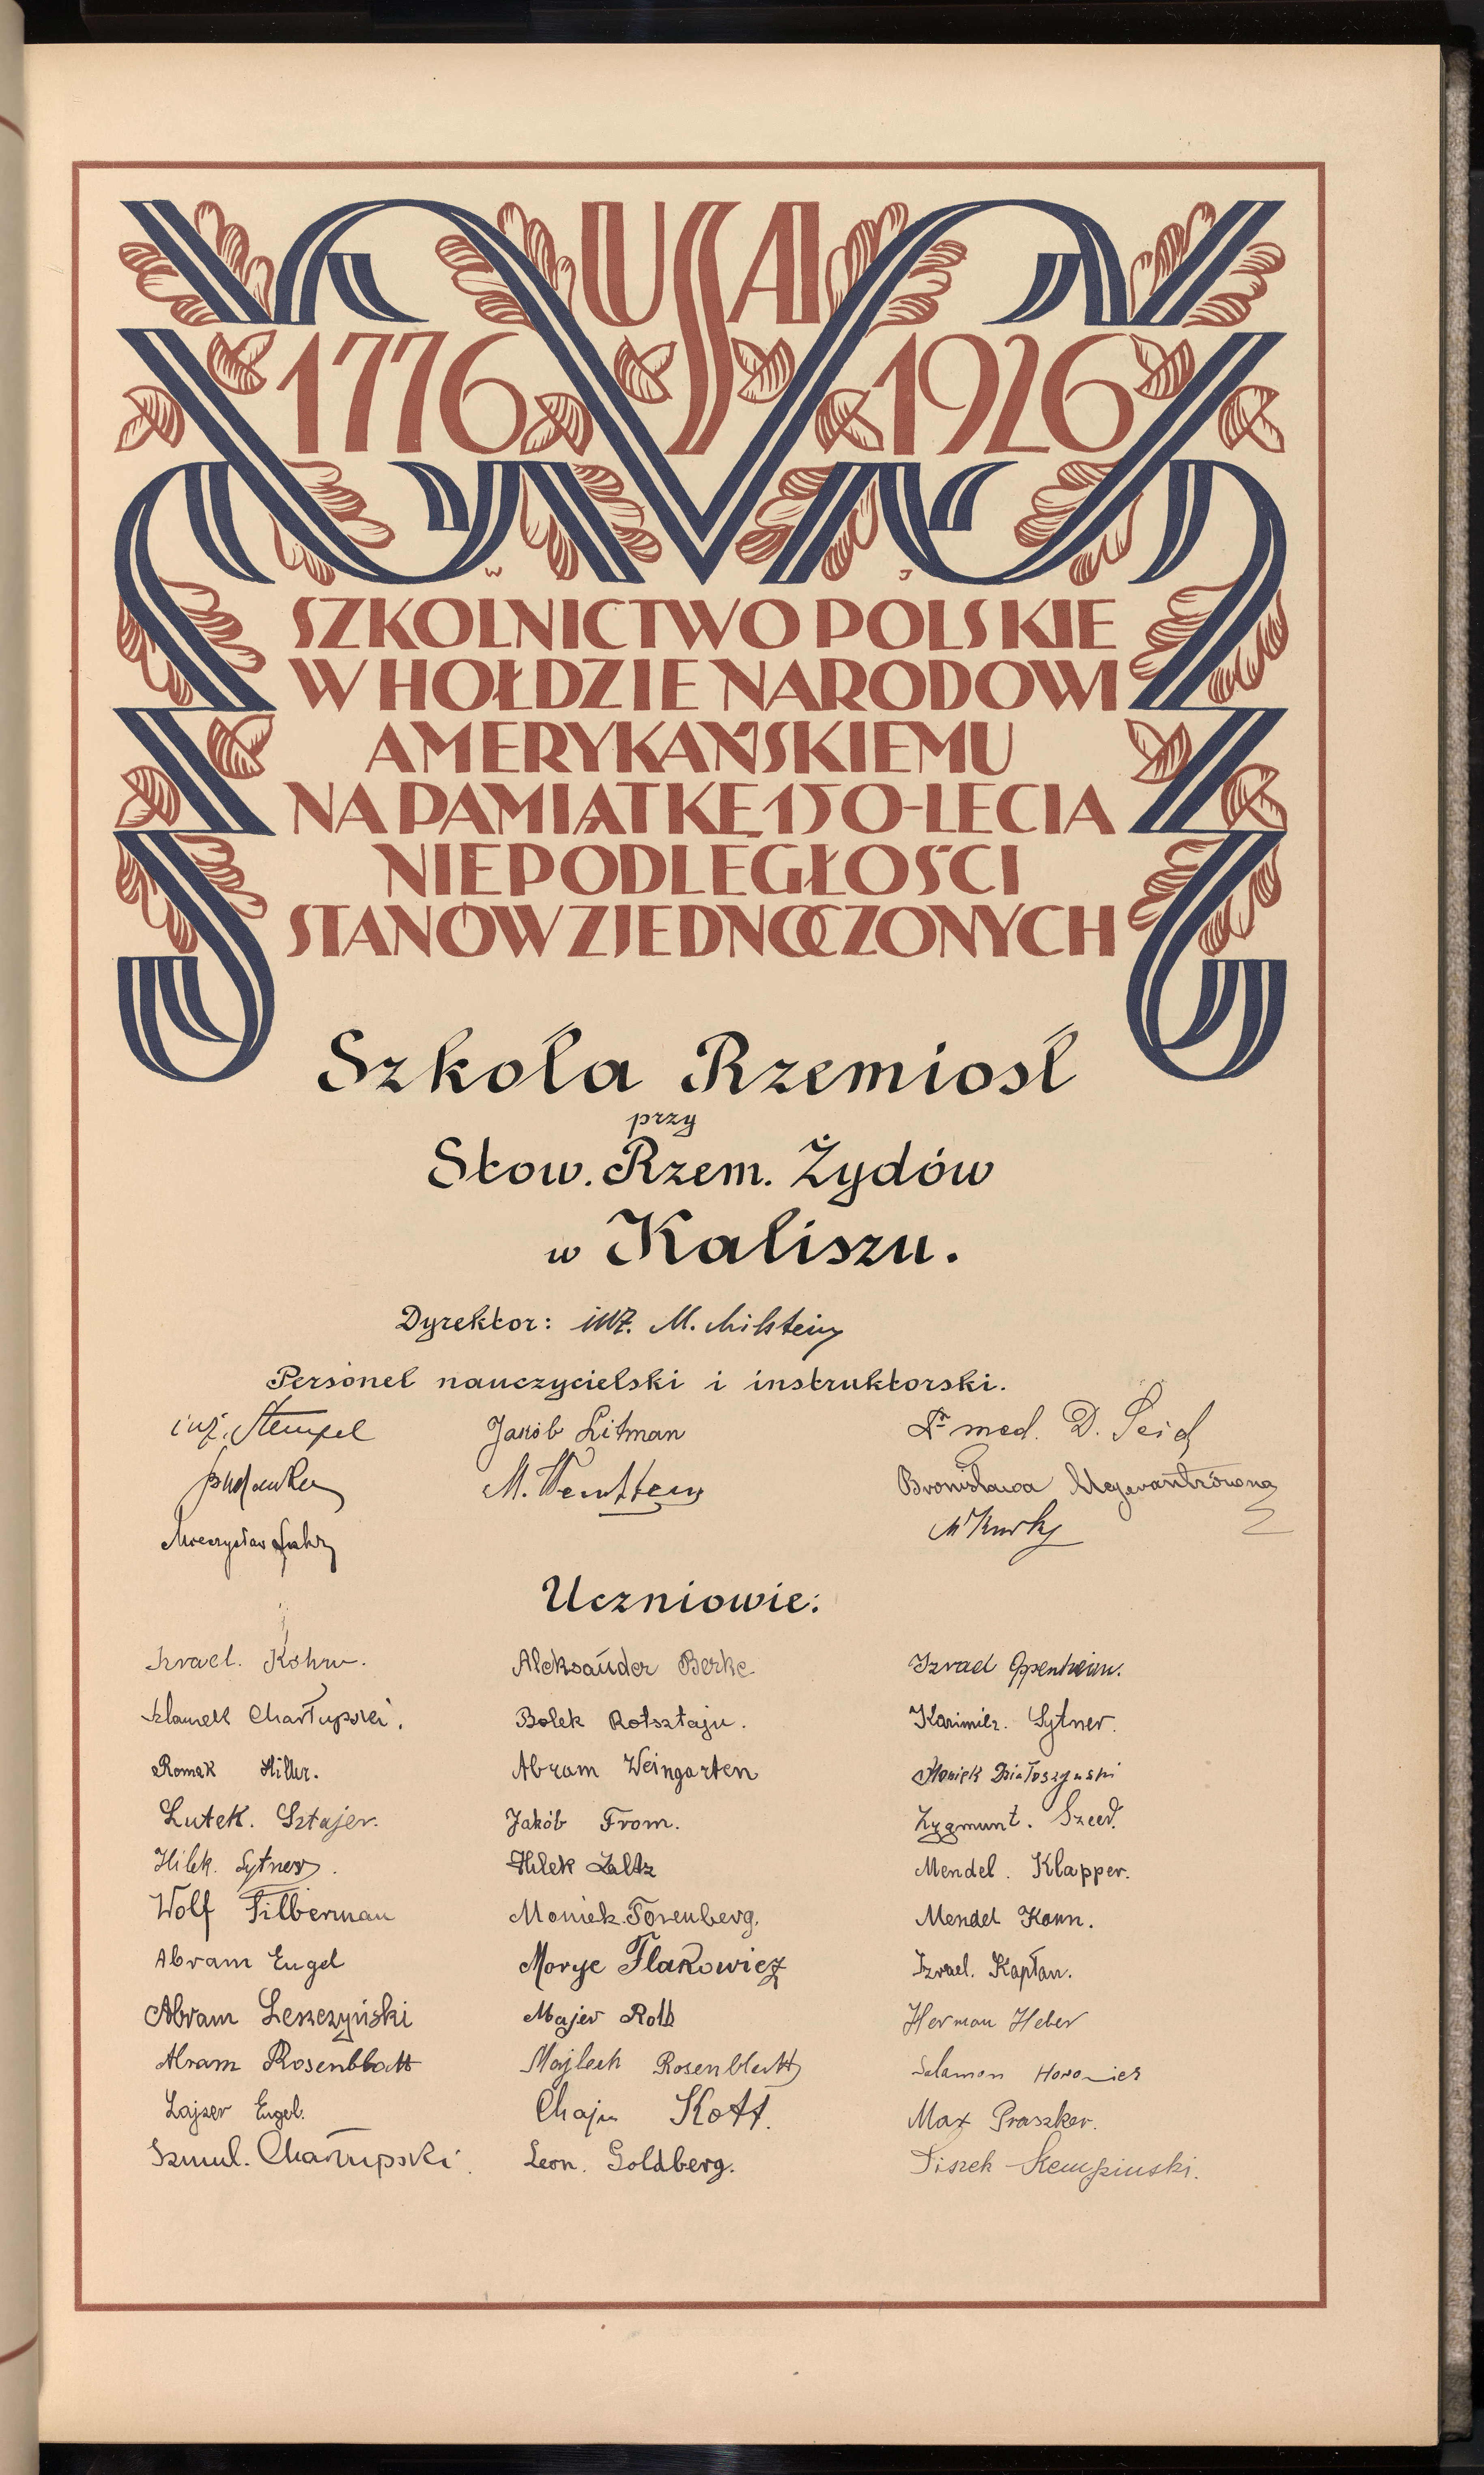 USA
1776 1926
W J
SZKOLNICTWO POLSKIE
W HOŁDZIE NARODOWI
AMERYKAŃSKIEMU
NA PAMIĄTKĘ 150-LECIA
NIEPODLEGŁOŚCI
STANÓW ZJEDNOCZONYCH
Szkoła Rzemiosł
przy
Stow. Rzem. Żydów
w Kaliszu.
Dyrektor: inż. M. Milstein
Personel nauczycielski i instruktorski.
inż. Stempel Jakób Litman Dr med. D. Seid
M. Bronisława
Mieczysław
Uczniowie:
Izrael. Kohn. Aleksander Berke Izrael Oppenheim.
Szlamek Chartupski. Bolek Rotsztajn. Kazimierz. Sytner.
Romek Hiller. Abram Weingarten Moniek Działoszyński
Lutek. Sztajer. Jakób From. Zygmunt.
Hilek. Sytner. Hilek Zaltz Mendel. Klapper.
Wolf Filberman Moniek. Mendel Konn.
Abram Engel Morye Flakowicz Izrael. Kapłan.
Abram Leszczyński Majer Rotb Herman Heber
Abram Rosenblatt Majlech Rosenblatt Salamon Horowicz
Lajzer Engel. Chajm Kott. Max Praszker.
Szmul. Chartupski. Leon. Goldberg. Fiszek Kempinski.